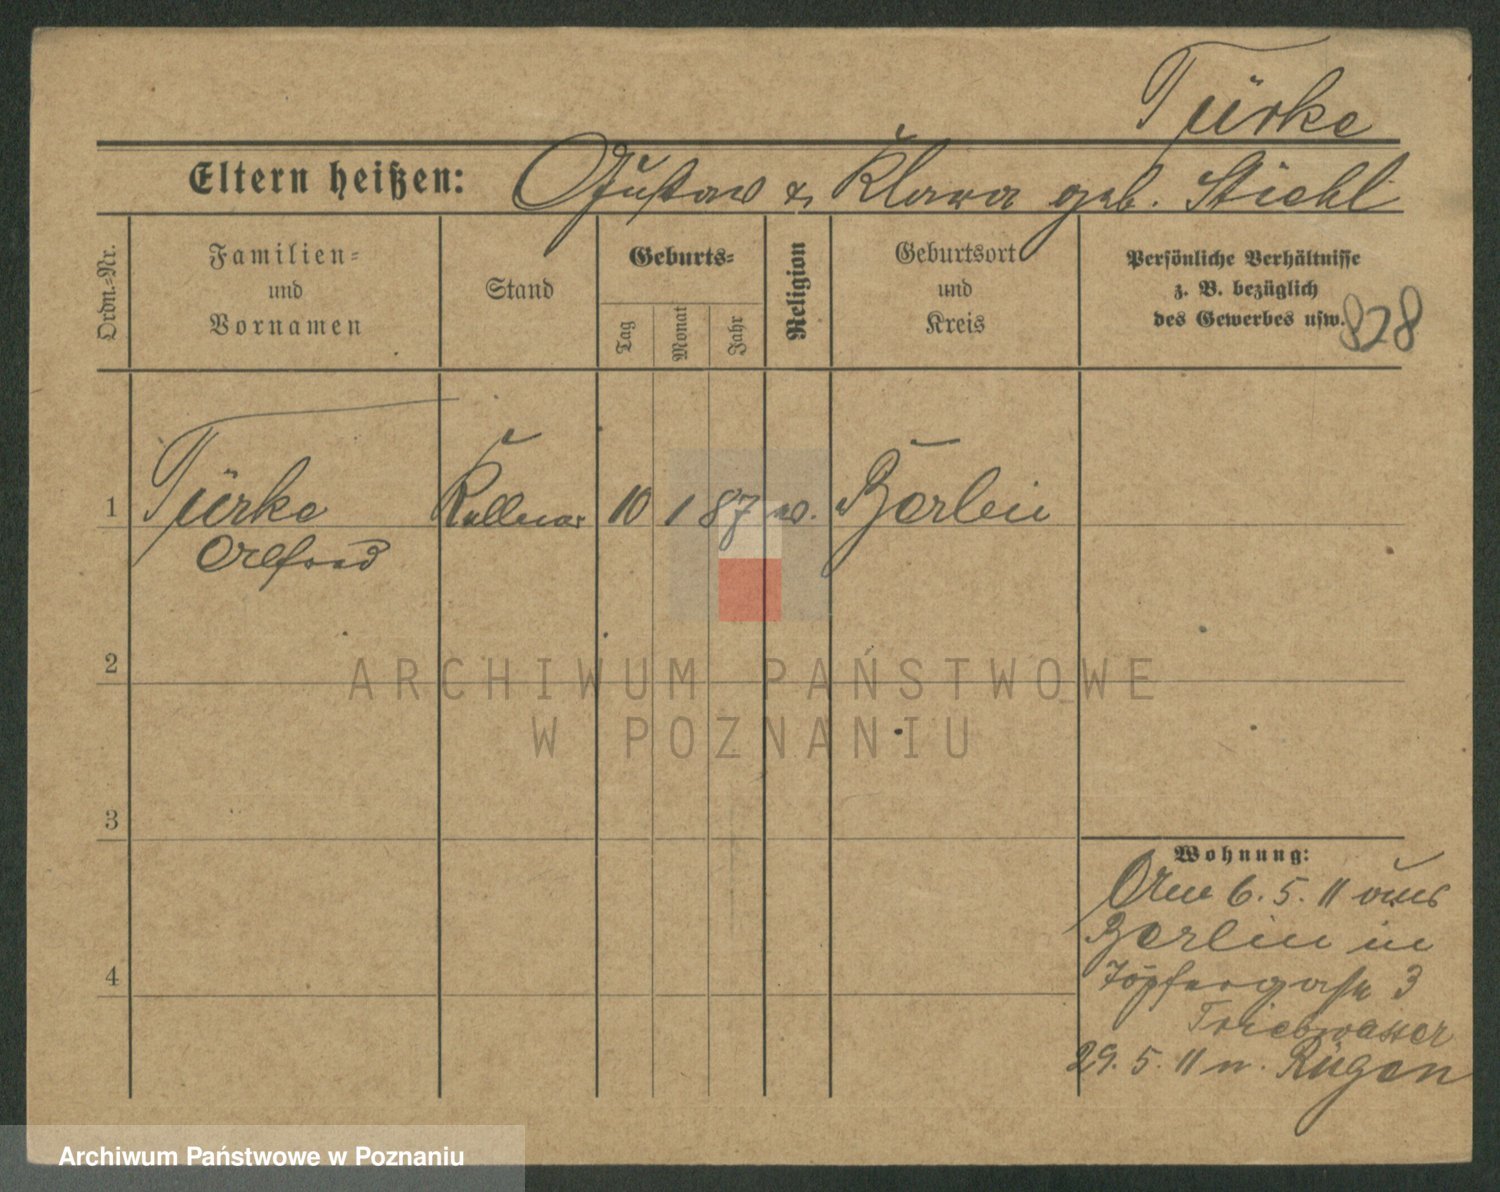 Türke
Eltern heißen: Gustav & Klara geb. Stiehl
Ordn.-Nr.
Familien-
und
Vornamen
Stand
Geburts-
Tag
Monat
Jahr
Religion
Geburtsort
und
Kreis
Persönliche Verhältnisse
z. B. bezüglich
des Gewerbes usw.
828
1 Türke Kellner 10 1 87 ev. Berlin
Alfred
2
3
4
Wohnung:
Am 6. 5. 11 aus
Berlin in
Töpfergasse 3
Triebwasser
29. 5. 11 n. Rügen
ARCHIWUM PAŃSTWOWE
W POZNANIU
Archiwum Państwowe w Poznaniu